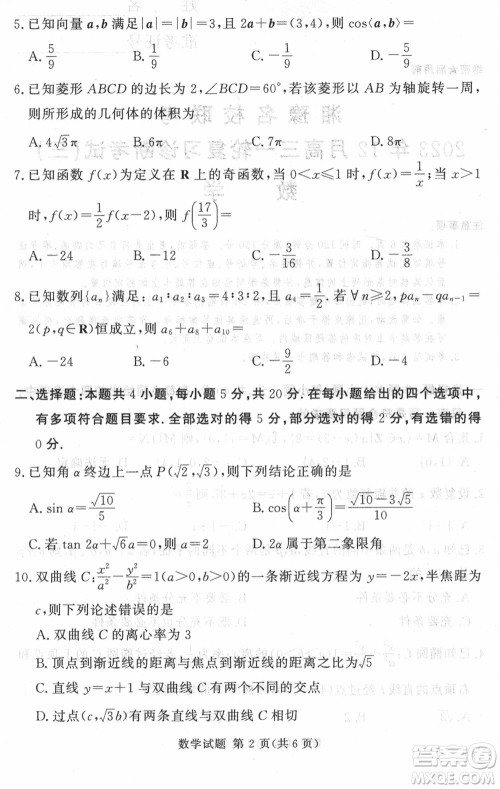 5. 已知向量 a,b 满足|a|=|b|=3,|a-2b|=5,则 a·b=
A. 5/4 B. -5/4 C. 5/6 D. -5/6
6. 已知菱形 ABCD 的边长为 2,∠BCD=60°,若该菱形以 AB 为轴旋转一周,
则所形成的几何体的体积为
A. 4√3π B. 6π C. 6√3π D. √7π
7. 已知函数 f(x)为定义在 R 上的奇函数,当 0<x≤1 时,f(x)=1/x;当 x>1
时,f(x)=1/2f(x-1),则 f(17/3)=
A. -24 B. -48 C. -3/16 D. -3/8
8. 已知数列{aₙ}满足:a₁:a₂:a₃=4:3:2,且 a₄=1/2.若∀n≥2,paₙ-qaₙ₋₁=
2(p,q∈R)恒成立,则 a₆+a₈+a₁₀=
A. -24 B. -6 C. -9/2 D. -4
二、选择题:本题共 4 小题,每小题 5 分,共 20 分.在每小题给出的四个选项中,
有多项符合题目要求.全部选对的得 5 分,部分选对的得 2 分,有选错的得
0 分.
9. 已知角 α 终边上一点 P(√2,√3),则下列结论正确的是
A. sin α=√10/5 B. cos(α-π/6)=(√10+3√5)/10
C. 若 tan 2α+√6a=0,则 a=2 D. 2α 属于第二象限角
10. 双曲线 C:x²/a²-y²/b²=1(a>0,b>0)的一条渐近线方程为 y=√2x,半焦距为
c,则下列论述错误的是
A. 双曲线 C 的离心率为 3
B. 顶点到渐近线的距离与焦点到渐近线的距离之比为√5
C. 直线 y=x+1 与双曲线 C 有两个不同的交点
D. 过点(b,c)有两条直线与双曲线 C 相切
数学试题 第 2 页(共 6 页)